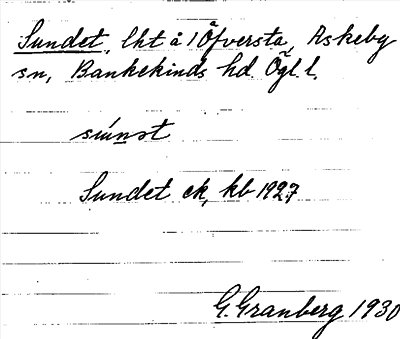 Sundet, lht å 1 Öfversta, Askeby
sn, Bankekinds hd. Ögl. l.
Sundet ek, kb 1927
G. Granberg 1930